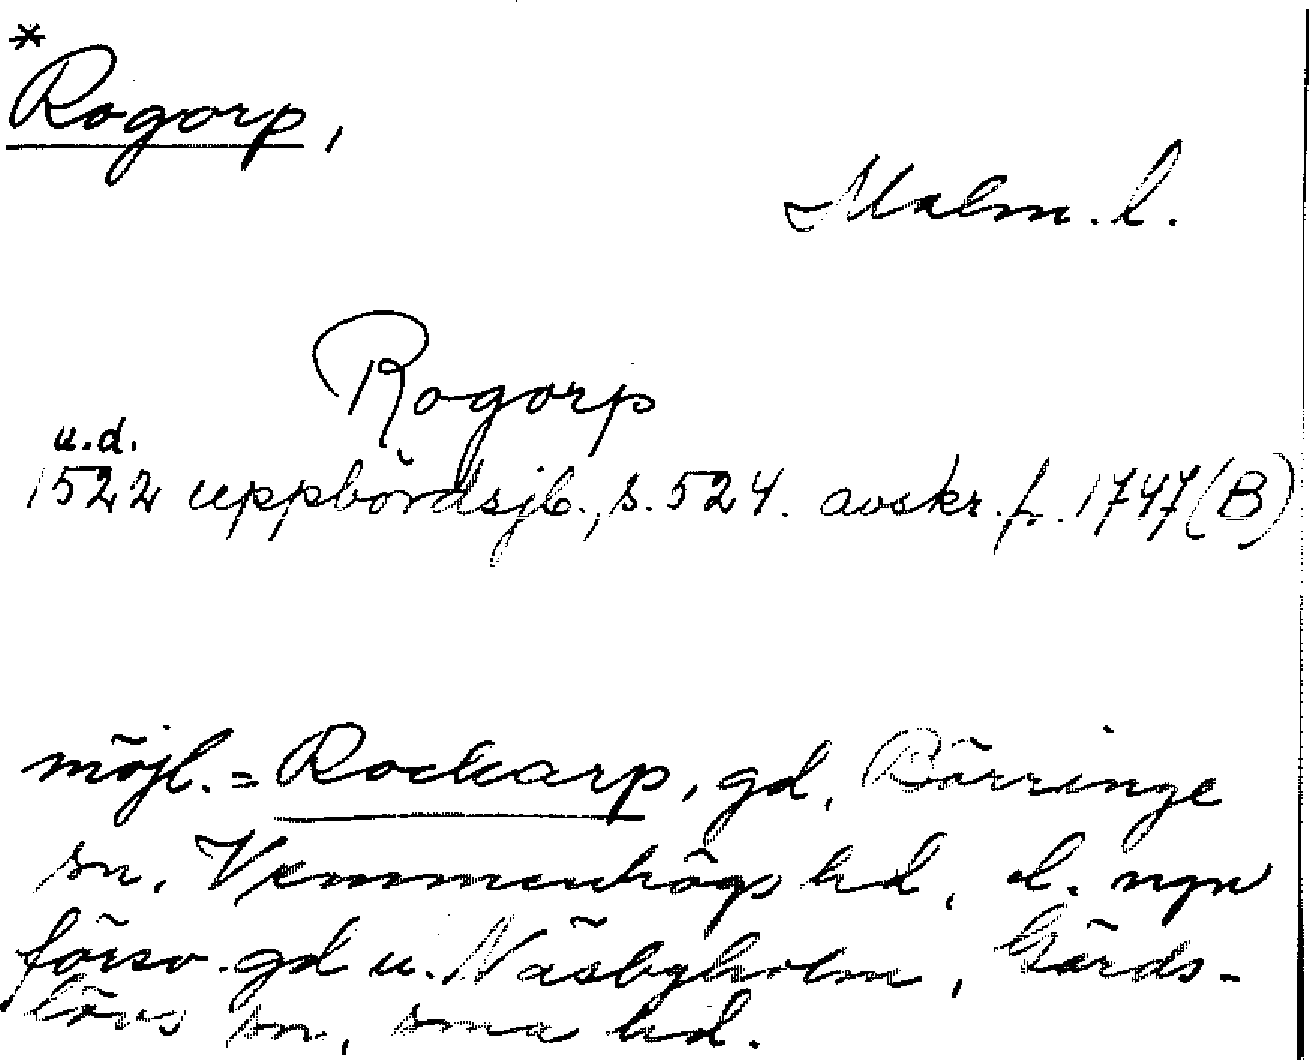 * Rogorp,
Malm. l.
Rogorp
u.d.
1522 uppbördsjb., s. 524. avskr. fr. 1747 (B)
möjl. = Rockarp, gd, Börringe
sn, Vemmenhögs hd, el. ngn
försv. gd u. Näsbyholm, Gärds-
lövs sn, sma hd.